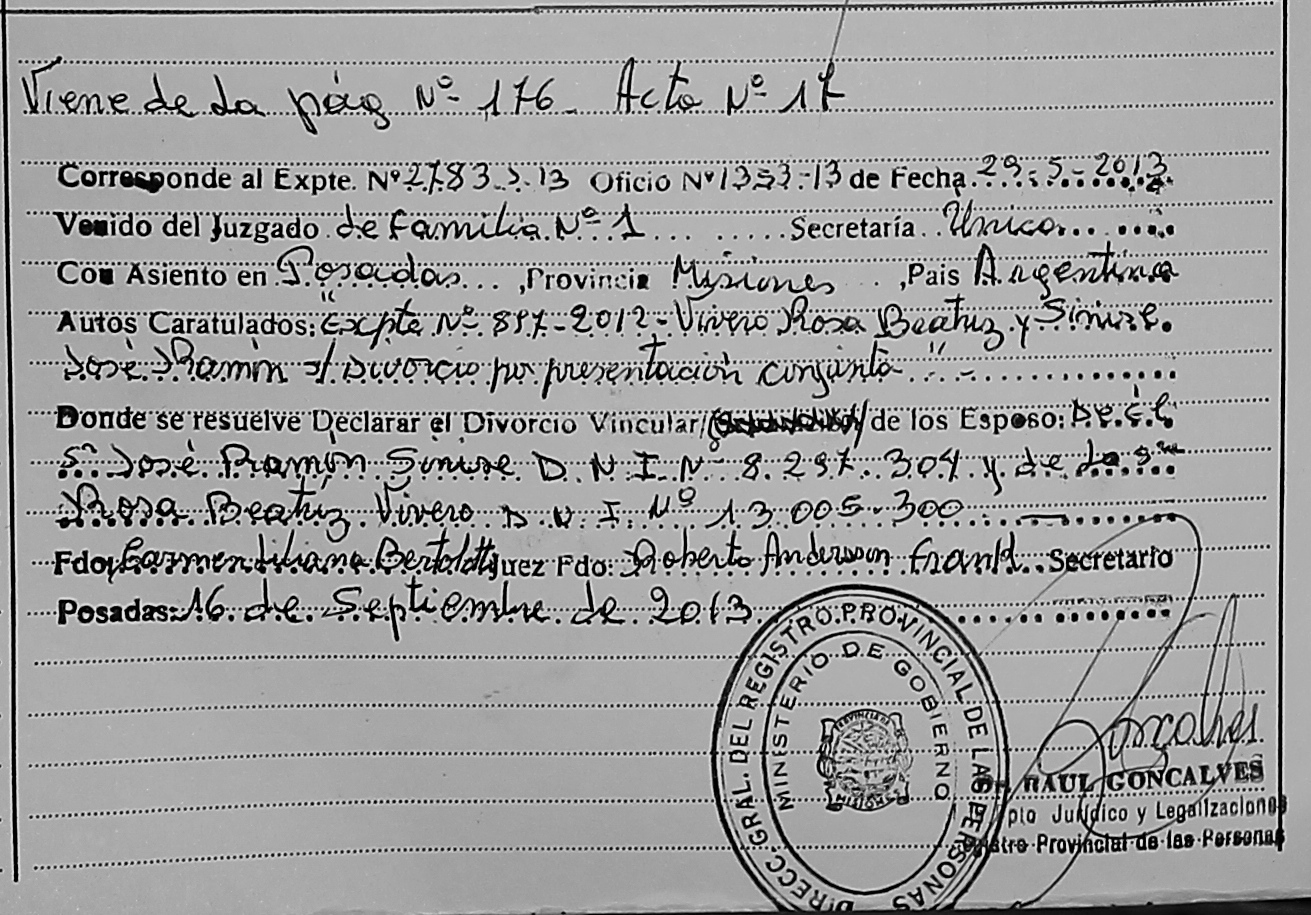 Viene de la pág Nº 176 - Acta Nº 17
Corresponde al Expte. Nº 2783 13 Oficio Nº 1353-13 de Fecha 29-5-2013
Venido del Juzgado de Familia Nº 1 Secretaría Única
Con Asiento en Posadas, Provincia Misiones, Pais Argentina
Autos Caratulados: "Excpte Nº 897-2012- Vivero Rosa Beatriz y
José Ramón s/ Divorcio por presentación conjunta"
Donde se resuelve Declarar el Divorcio Vincular/ / de los Esposo: De el
Sr José Ramón D.N.I. Nº 8.297.304 y de la Sra
Rosa Beatriz Vivero D.N.I. Nº 13.005.300
Fdo: Carmen Liliana Juez Fdo: Roberto Andersson Frank Secretario
Posadas: 16 de Septiembre de 2013
DIRECC. GRAL. DEL REGISTRO PROVINCIAL DE LAS PERSONAS
MINISTERIO DE GOBIERNO
PROVINCIA DE
MISIONES
RAUL GONCALVES
pto Jurídico y Legalizaciones
Registro Provincial de las Personas